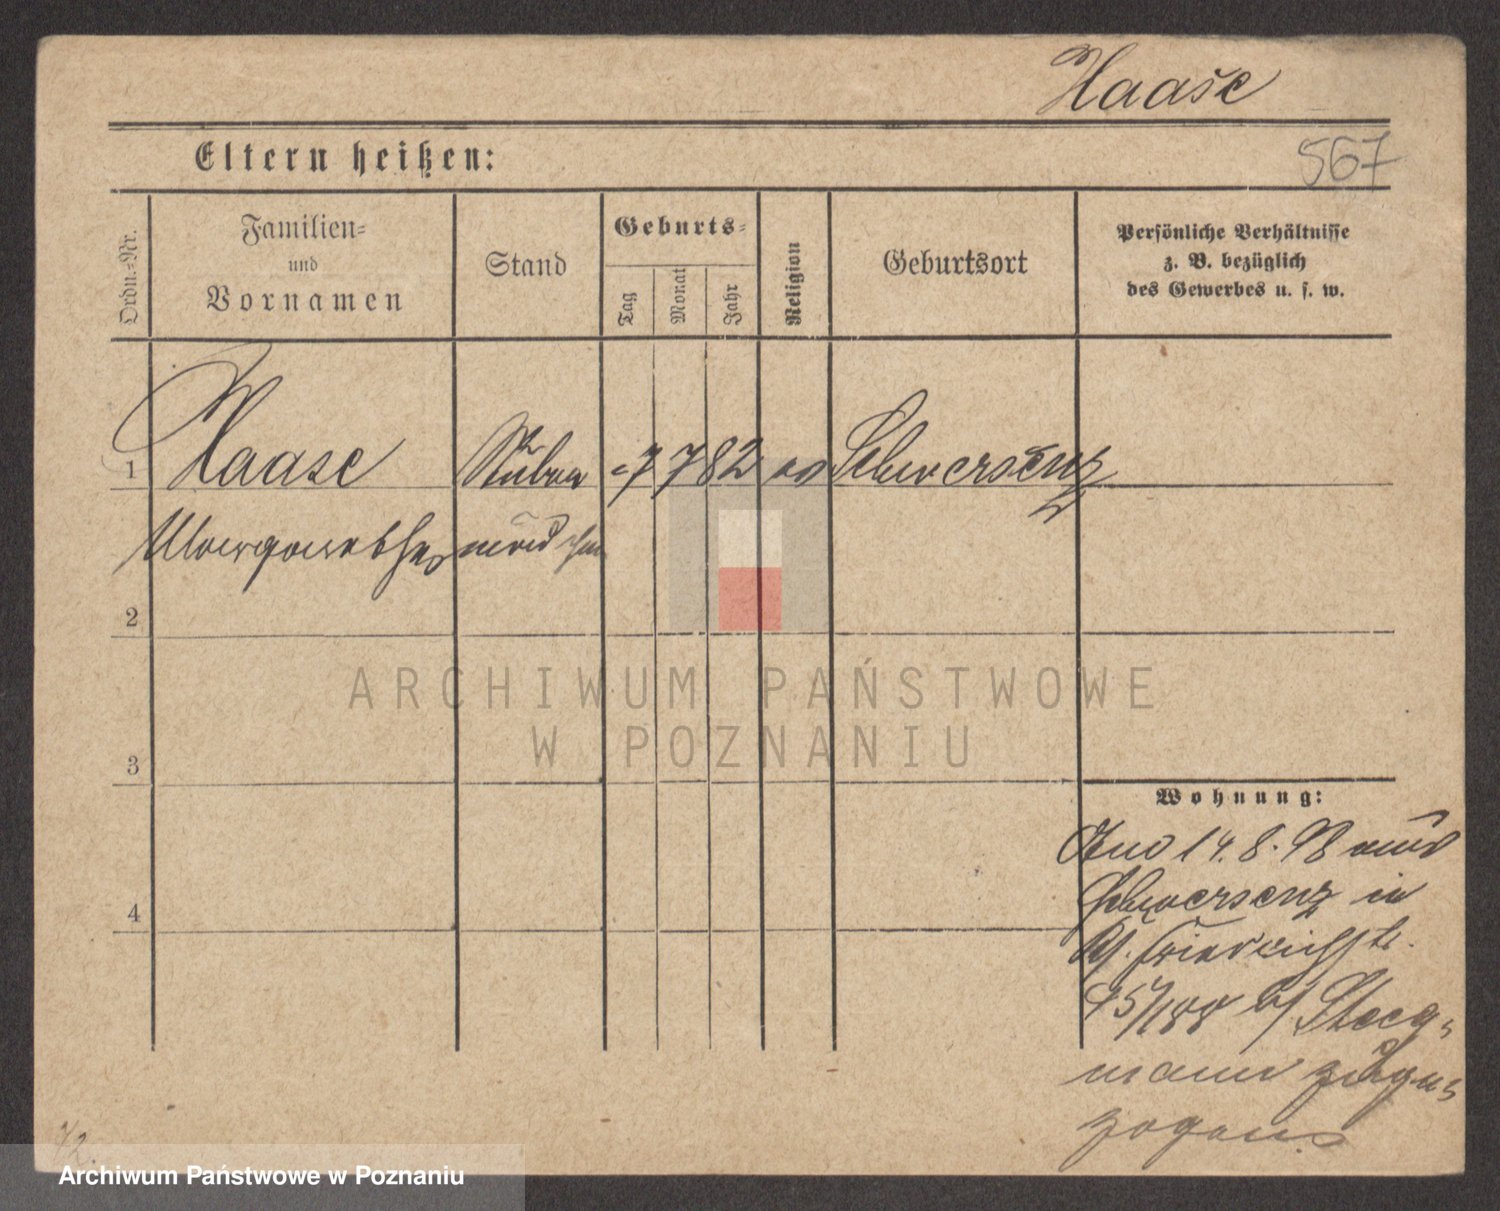 Haase
Eltern heißen:
567
Ordn.-Nr.
Familien-
und
Vornamen
Stand
Geburts-
Tag
Monat
Jahr
Religion
Geburtsort
Persönliche Verhältnisse
z. B. bezüglich
des Gewerbes u. s. w.
1
Haase Stuben 7 7 82 ev Schwersenz
mädchen
2
ARCHIWUM PAŃSTWOWE
W POZNANIU
3
Wohnung:
14. 8. 98 aus
Schwersenz in
4
Friedrichstr.
Steeg-
mann zuge-
zogen
Archiwum Państwowe w Poznaniu